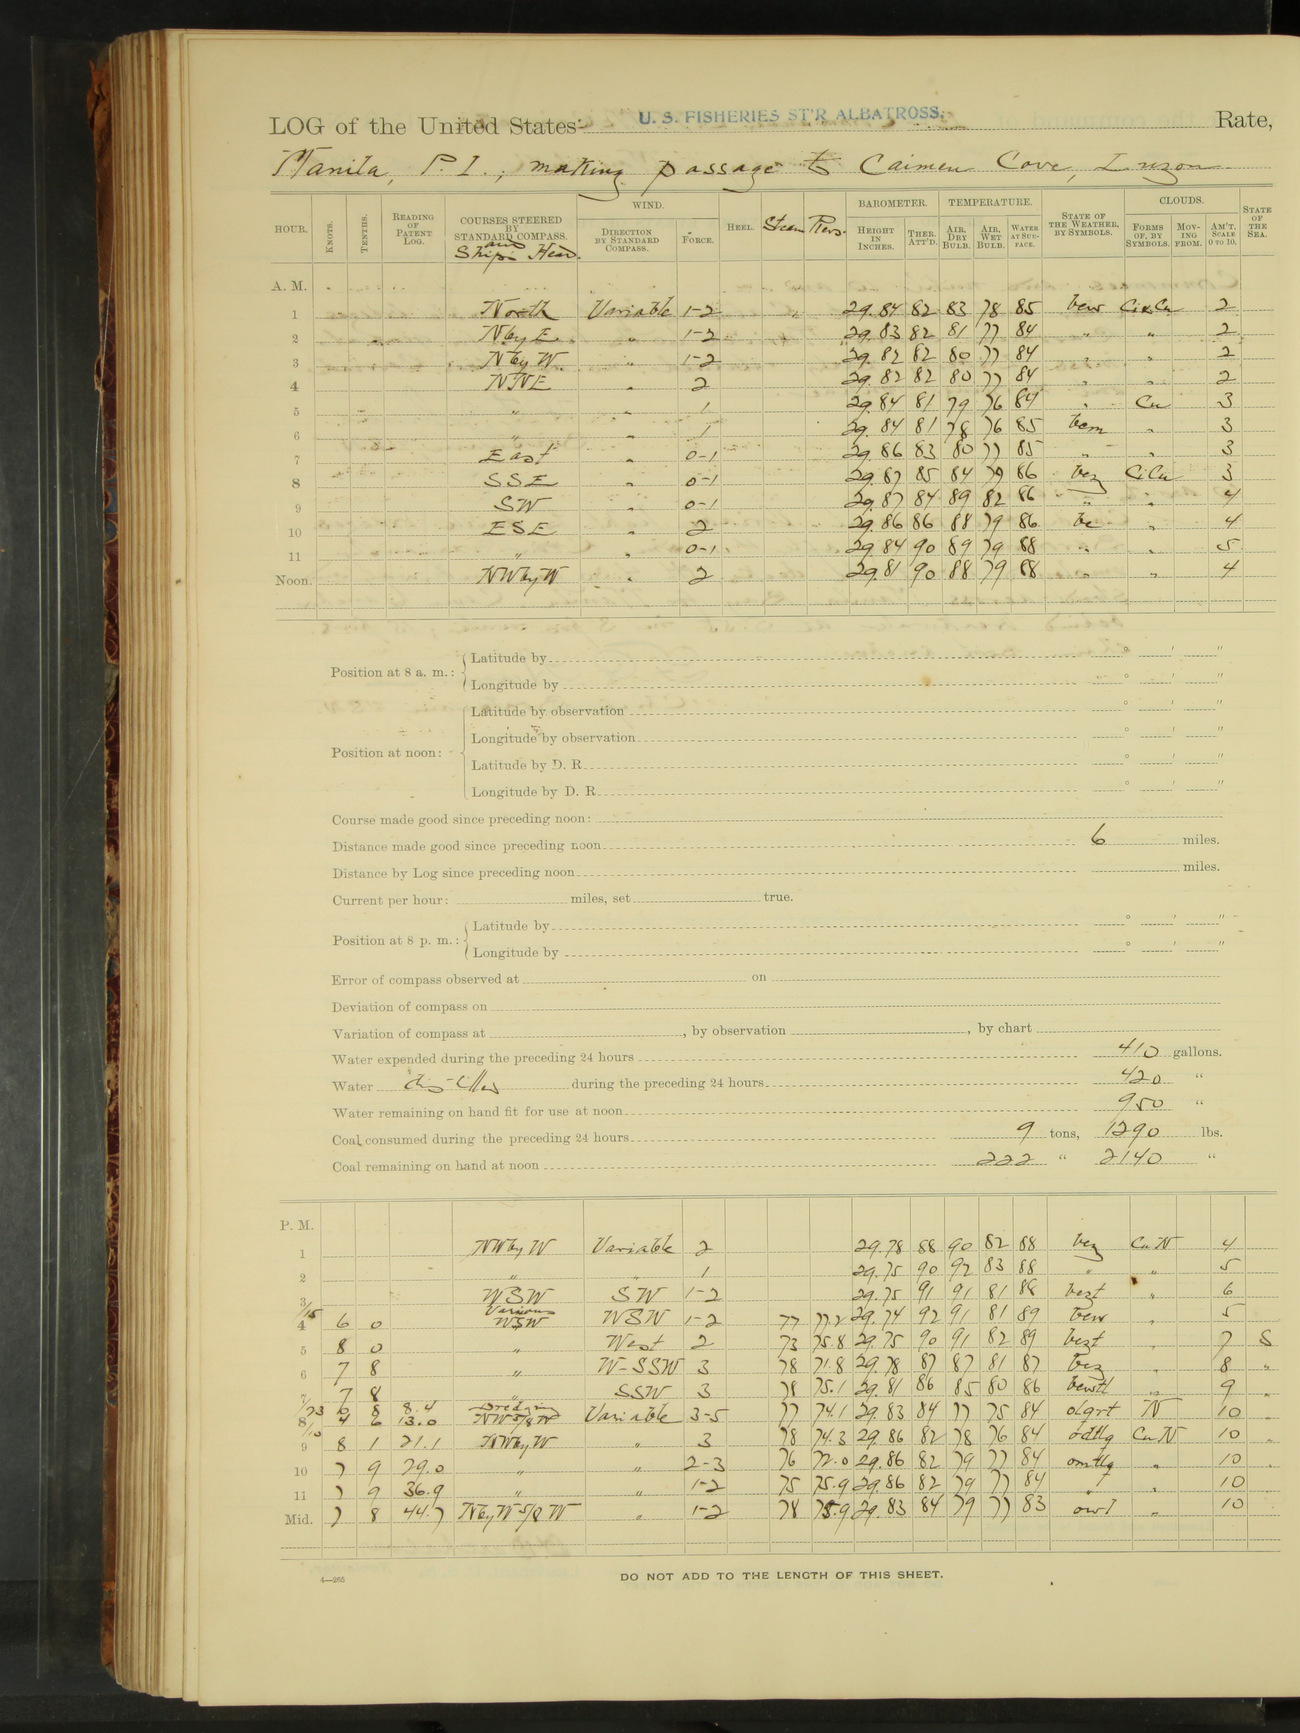 LOG of the United States U. S. FISHERIES ST'R ALBATROSS. Rate,
Manila, P. I., making passage to Caimen Cove, Luzon
HOUR. KNOTS. TENTHS. READING OF PATENT LOG. COURSES STEERED BY STANDARD COMPASS. and Ship's Head. WIND. DIRECTION BY STANDARD COMPASS. FORCE. HEEL. Steam Revs. BAROMETER. HEIGHT IN INCHES. THER. ATT'D. TEMPERATURE. AIR, DRY BULB. AIR, WET BULB. WATER AT SURFACE. STATE OF THE WEATHER, BY SYMBOLS. CLOUDS. FORMS OF, BY SYMBOLS. MOVING FROM. AM'T, SCALE 0 TO 10. STATE OF THE SEA.
A. M.
1 North Variable 1-2 29.84 82 83 78 85 bcw 2
2 N by E " 1-2 29.83 82 81 77 84 " " 2
3 N by W " 1-2 29.82 82 80 77 84 " " 2
4 NNE " 2 29.82 82 80 77 84 " " 2
5 " " 1 29.84 81 79 76 84 " Cu 3
6 " " 1 29.84 81 78 76 85 bcm " 3
7 East " 0-1 29.86 83 80 77 85 " " 3
8 SSE " 0-1 29.87 85 84 79 86 bcz CiCu 3
9 SW " 0-1 29.87 84 89 82 86 " " 4
10 ESE " 2 29.86 86 88 79 86 bc " 4
11 " " 0-1 29.84 90 89 79 88 " " 5
Noon. NW by W " 2 29.81 90 88 79 88 " " 4
Position at 8 a. m.: Latitude by ° ' "
Longitude by ° ' "
Position at noon: Latitude by observation ° ' "
Longitude by observation ° ' "
Latitude by D. R. ° ' "
Longitude by D. R. ° ' "
Course made good since preceding noon:
Distance made good since preceding noon 6 miles.
Distance by Log since preceding noon miles.
Current per hour: miles, set true.
Position at 8 p. m.: Latitude by ° ' "
Longitude by ° ' "
Error of compass observed at on
Deviation of compass on
Variation of compass at , by observation , by chart
Water expended during the preceding 24 hours 410 gallons.
Water distilled during the preceding 24 hours 420 "
Water remaining on hand fit for use at noon 950 "
Coal consumed during the preceding 24 hours 9 tons, 1290 lbs.
Coal remaining on hand at noon 222 " 2140 "
P. M.
1 NW by W Variable 2 29.78 88 90 82 88 bcz CuN 4
2 " " 1 29.75 90 92 83 88 " " 5
3 WSW SW 1-2 29.75 91 91 81 88 bczt " 6
3/15 Various
4 6 0 WSW WSW 1-2 77 77.2 29.74 92 91 81 89 bcw " 5
5 8 0 " West 2 73 75.8 29.75 90 91 82 89 bczt " 7 S
6 7 8 " W-SSW 3 78 71.8 29.78 87 87 81 87 bcz " 8 "
7 7 8 " SSW 3 78 75.1 29.81 86 85 80 86 " 9 "
7/23 0 8 8.4 Dredging
8 4 6 13.0 NW 5/8 W Variable 3-5 77 74.1 29.83 84 77 75 84 olqrt N 10 "
8/10
9 8 1 21.1 NW by W " 3 78 74.3 29.86 82 78 76 84 CuN 10 "
10 7 9 29.0 " " 2-3 76 72.0 29.86 82 79 77 84 " 10 "
11 7 9 36.9 " " 1-2 75 75.9 29.86 82 79 77 84 " " 10
Mid. 7 8 44.7 N by W 5/8 W " 1-2 78 75.9 29.83 84 79 77 83 owl " 10
4—265
DO NOT ADD TO THE LENGTH OF THIS SHEET.